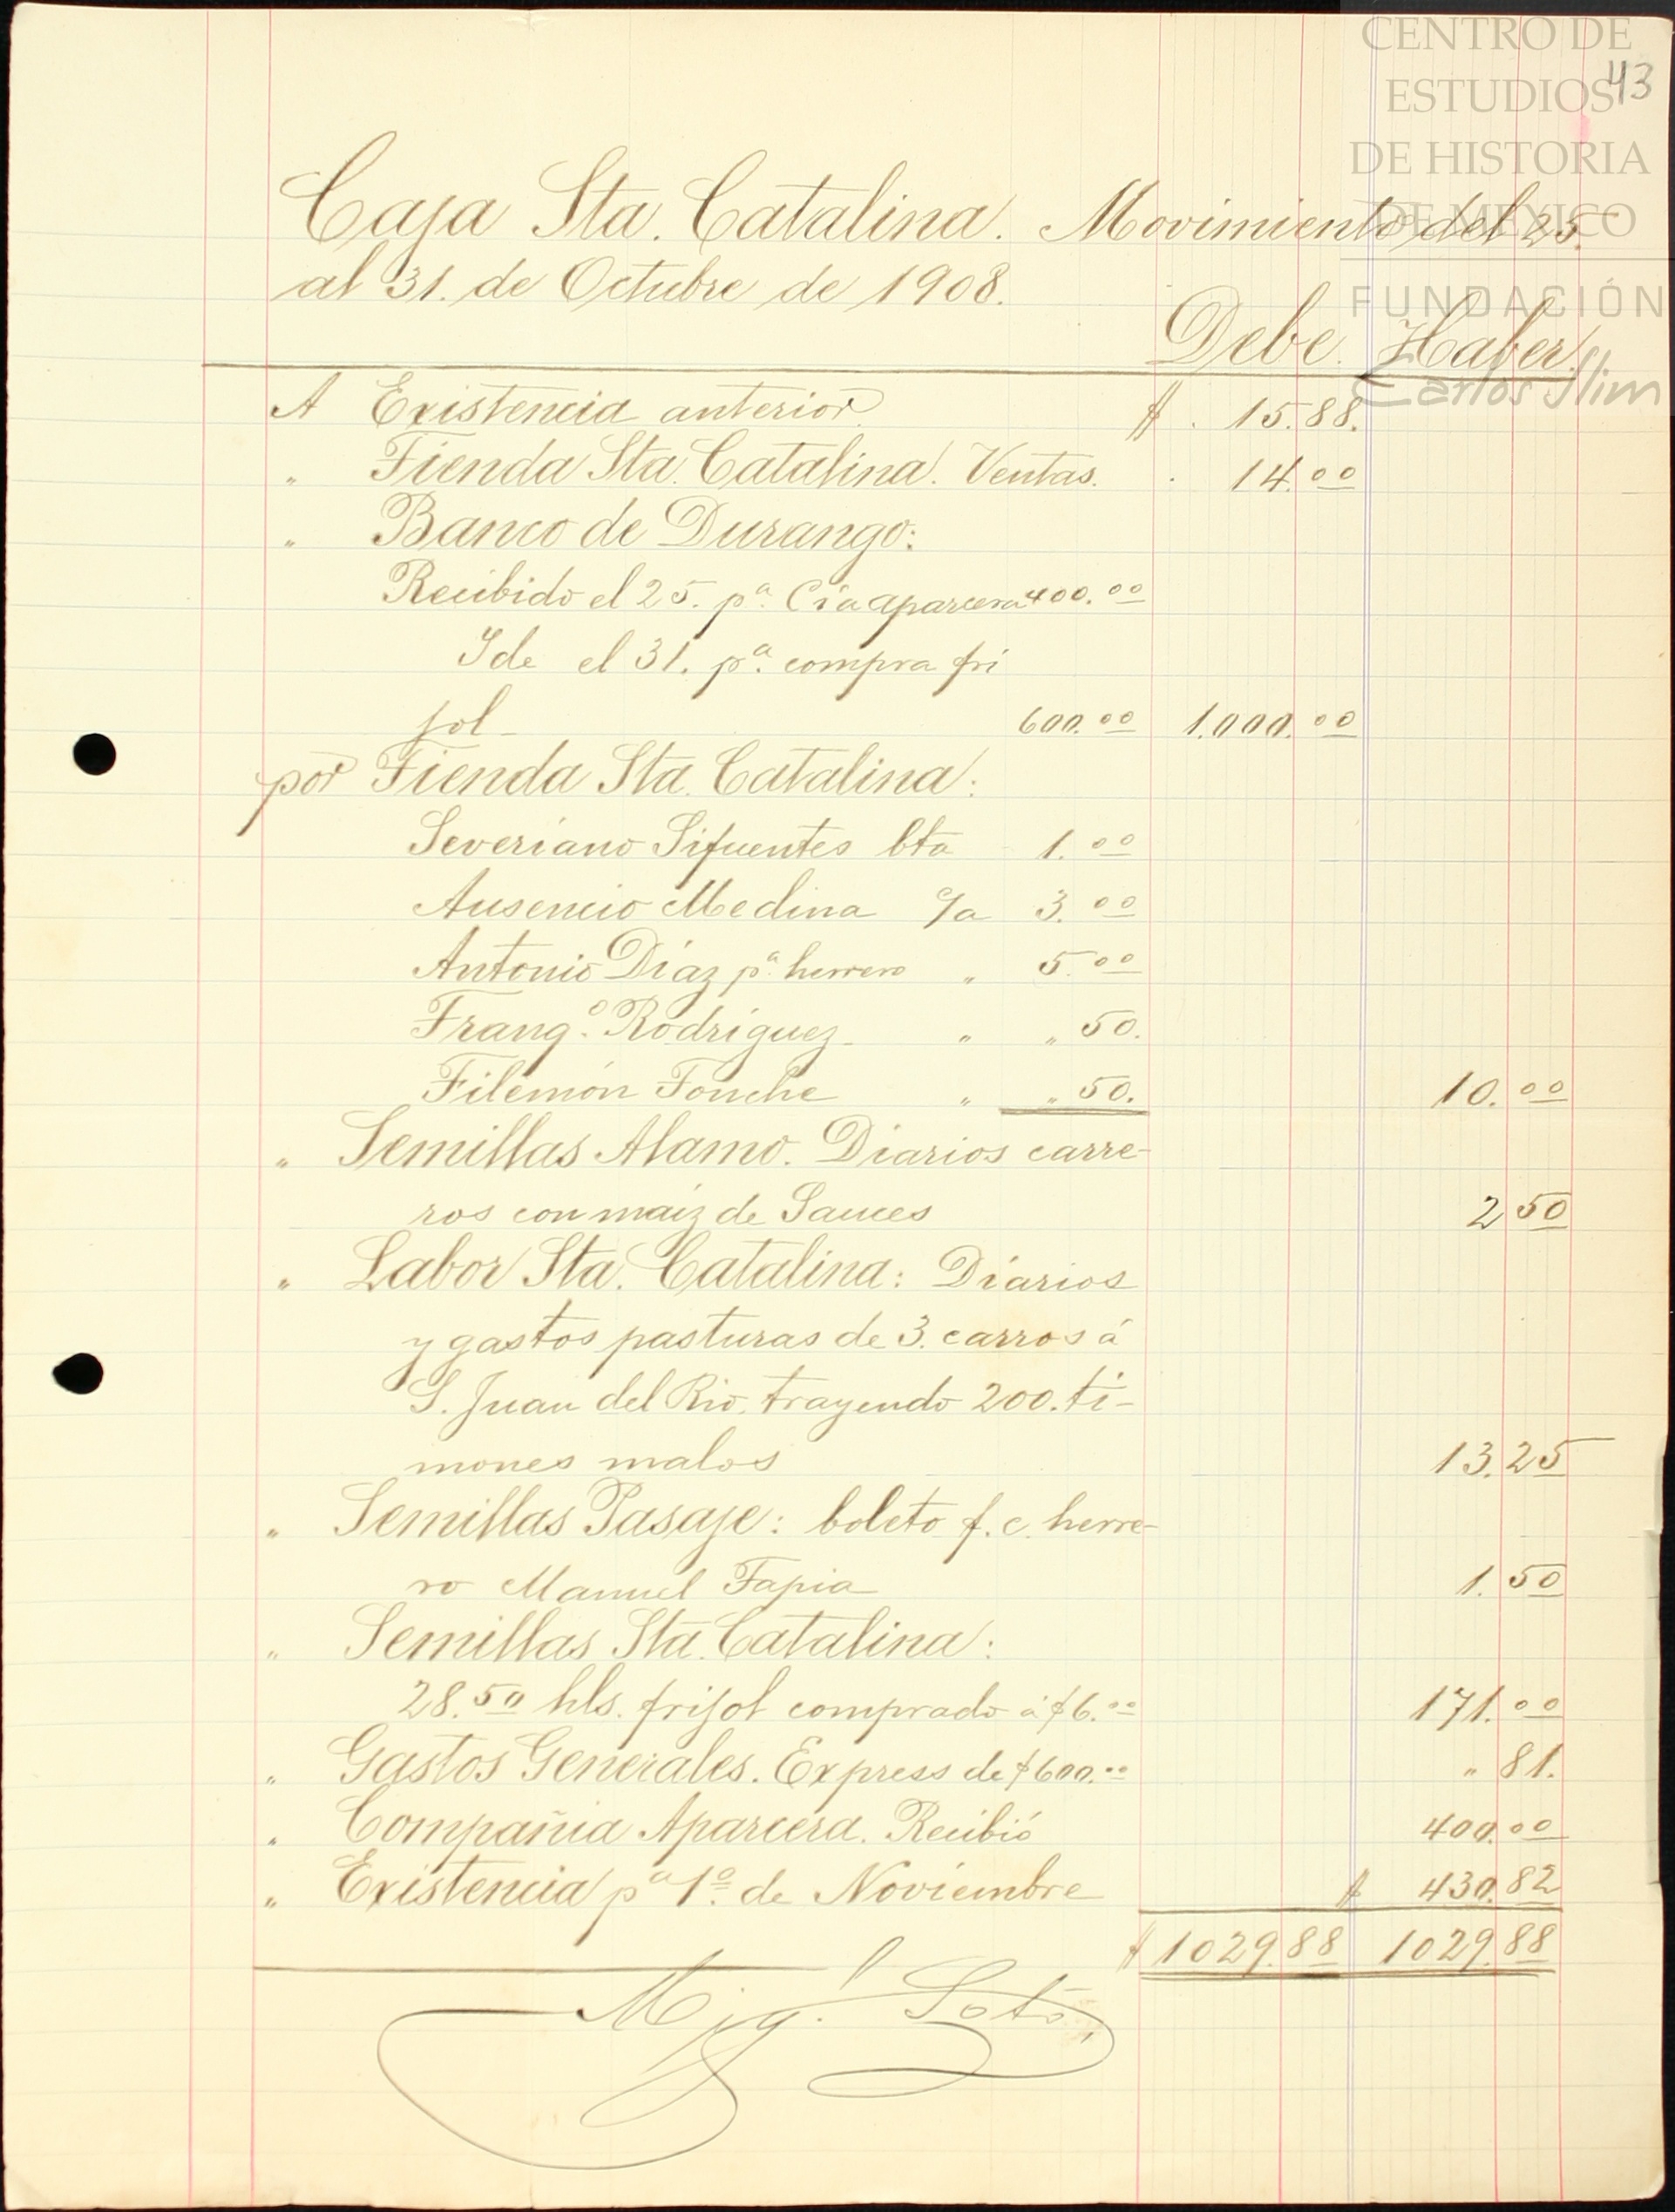 CENTRO DE
ESTUDIOS
DE HISTORIA
DE MÉXICO
FUNDACIÓN
Carlos Slim
43
Caja Sta. Catalina. Movimiento del 25.
al 31. de Octubre de 1908.
Debe. Haber.
A Existencia anterior. $ 15.88.
" Tienda Sta. Catalina. Ventas. 14.00
" Banco de Durango:
Recibido el 25. pa. Cía aparcera 400.00
Ide el 31. pa. compra fri
jol 600.00 1.000.00
por Tienda Sta. Catalina:
Severiano Sifuentes cta 1.00
Ausencio Medina 3.00
Antonio Díaz pa. herrero " 5.00
Franqo. Rodríguez " " 50.
Filemón Fouche " " 50. 10.00
" Semillas Alamo. Diarios carre-
ros con maíz de Sauces 2 50
" Labor Sta. Catalina: Diarios
y gastos pasturas de 3. carros á
S. Juan del Rio, trayendo 200. ti-
mones malos 13.25
" Semillas Pasaje: boleto f. c. herre-
ro Manuel Tapia 1.50
" Semillas Sta. Catalina:
28.50 hls. frijol comprado á $6.00 171.00
" Gastos Generales. Express de $600.00 " 81.
" Compañia Aparcera. Recibió 400.00
" Existencia pa 1o. de Noviembre $ 430.82
$ 1029.88 1029.88
Migl. Soto